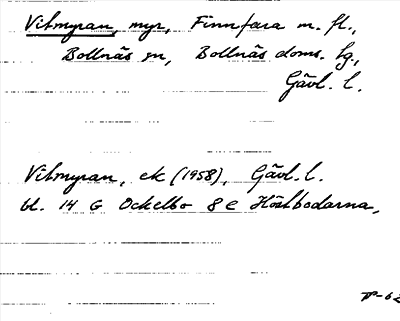 Vitmyran, myr, Finnfara m. fl.,
Bollnäs sn, Bollnäs doms. hg.,
Gävl. l.
Vitmyran, ek (1958), Gävl. l.
bl. 14 G Ockelbo 8e Höstbodarna,